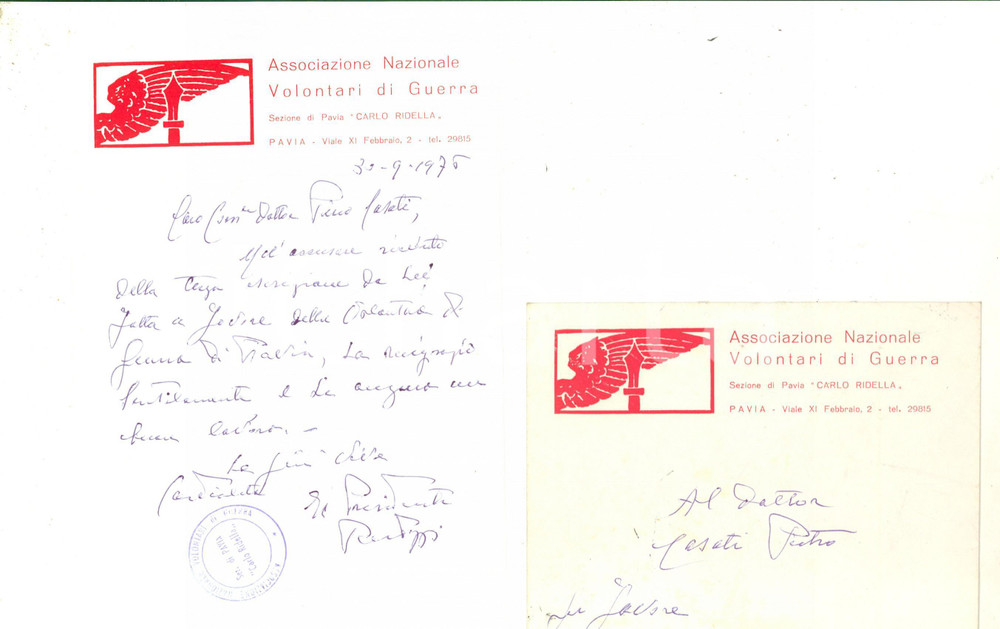 Associazione Nazionale
Volontari di Guerra
Sezione di Pavia "CARLO RIDELLA"
PAVIA - Viale XI Febbraio, 2 - tel. 29815
30-9-1976
Caro Dottor Pino Casati,
della da Lei
fatta a favore della Volontari di
Guerra di Pavia, La ringrazio
gentilmente e Le auguro un
buon lavoro. -
La più viva
Cordialità
Il Presidente
ASSOCIAZIONE NAZIONALE VOLONTARI DI GUERRA
Sez. di PAVIA
"Carlo Ridella"
Associazione Nazionale
Volontari di Guerra
Sezione di Pavia "CARLO RIDELLA"
PAVIA - Viale XI Febbraio, 2 - tel. 29815
Al Dottor
Casati Pietro
Per Favore